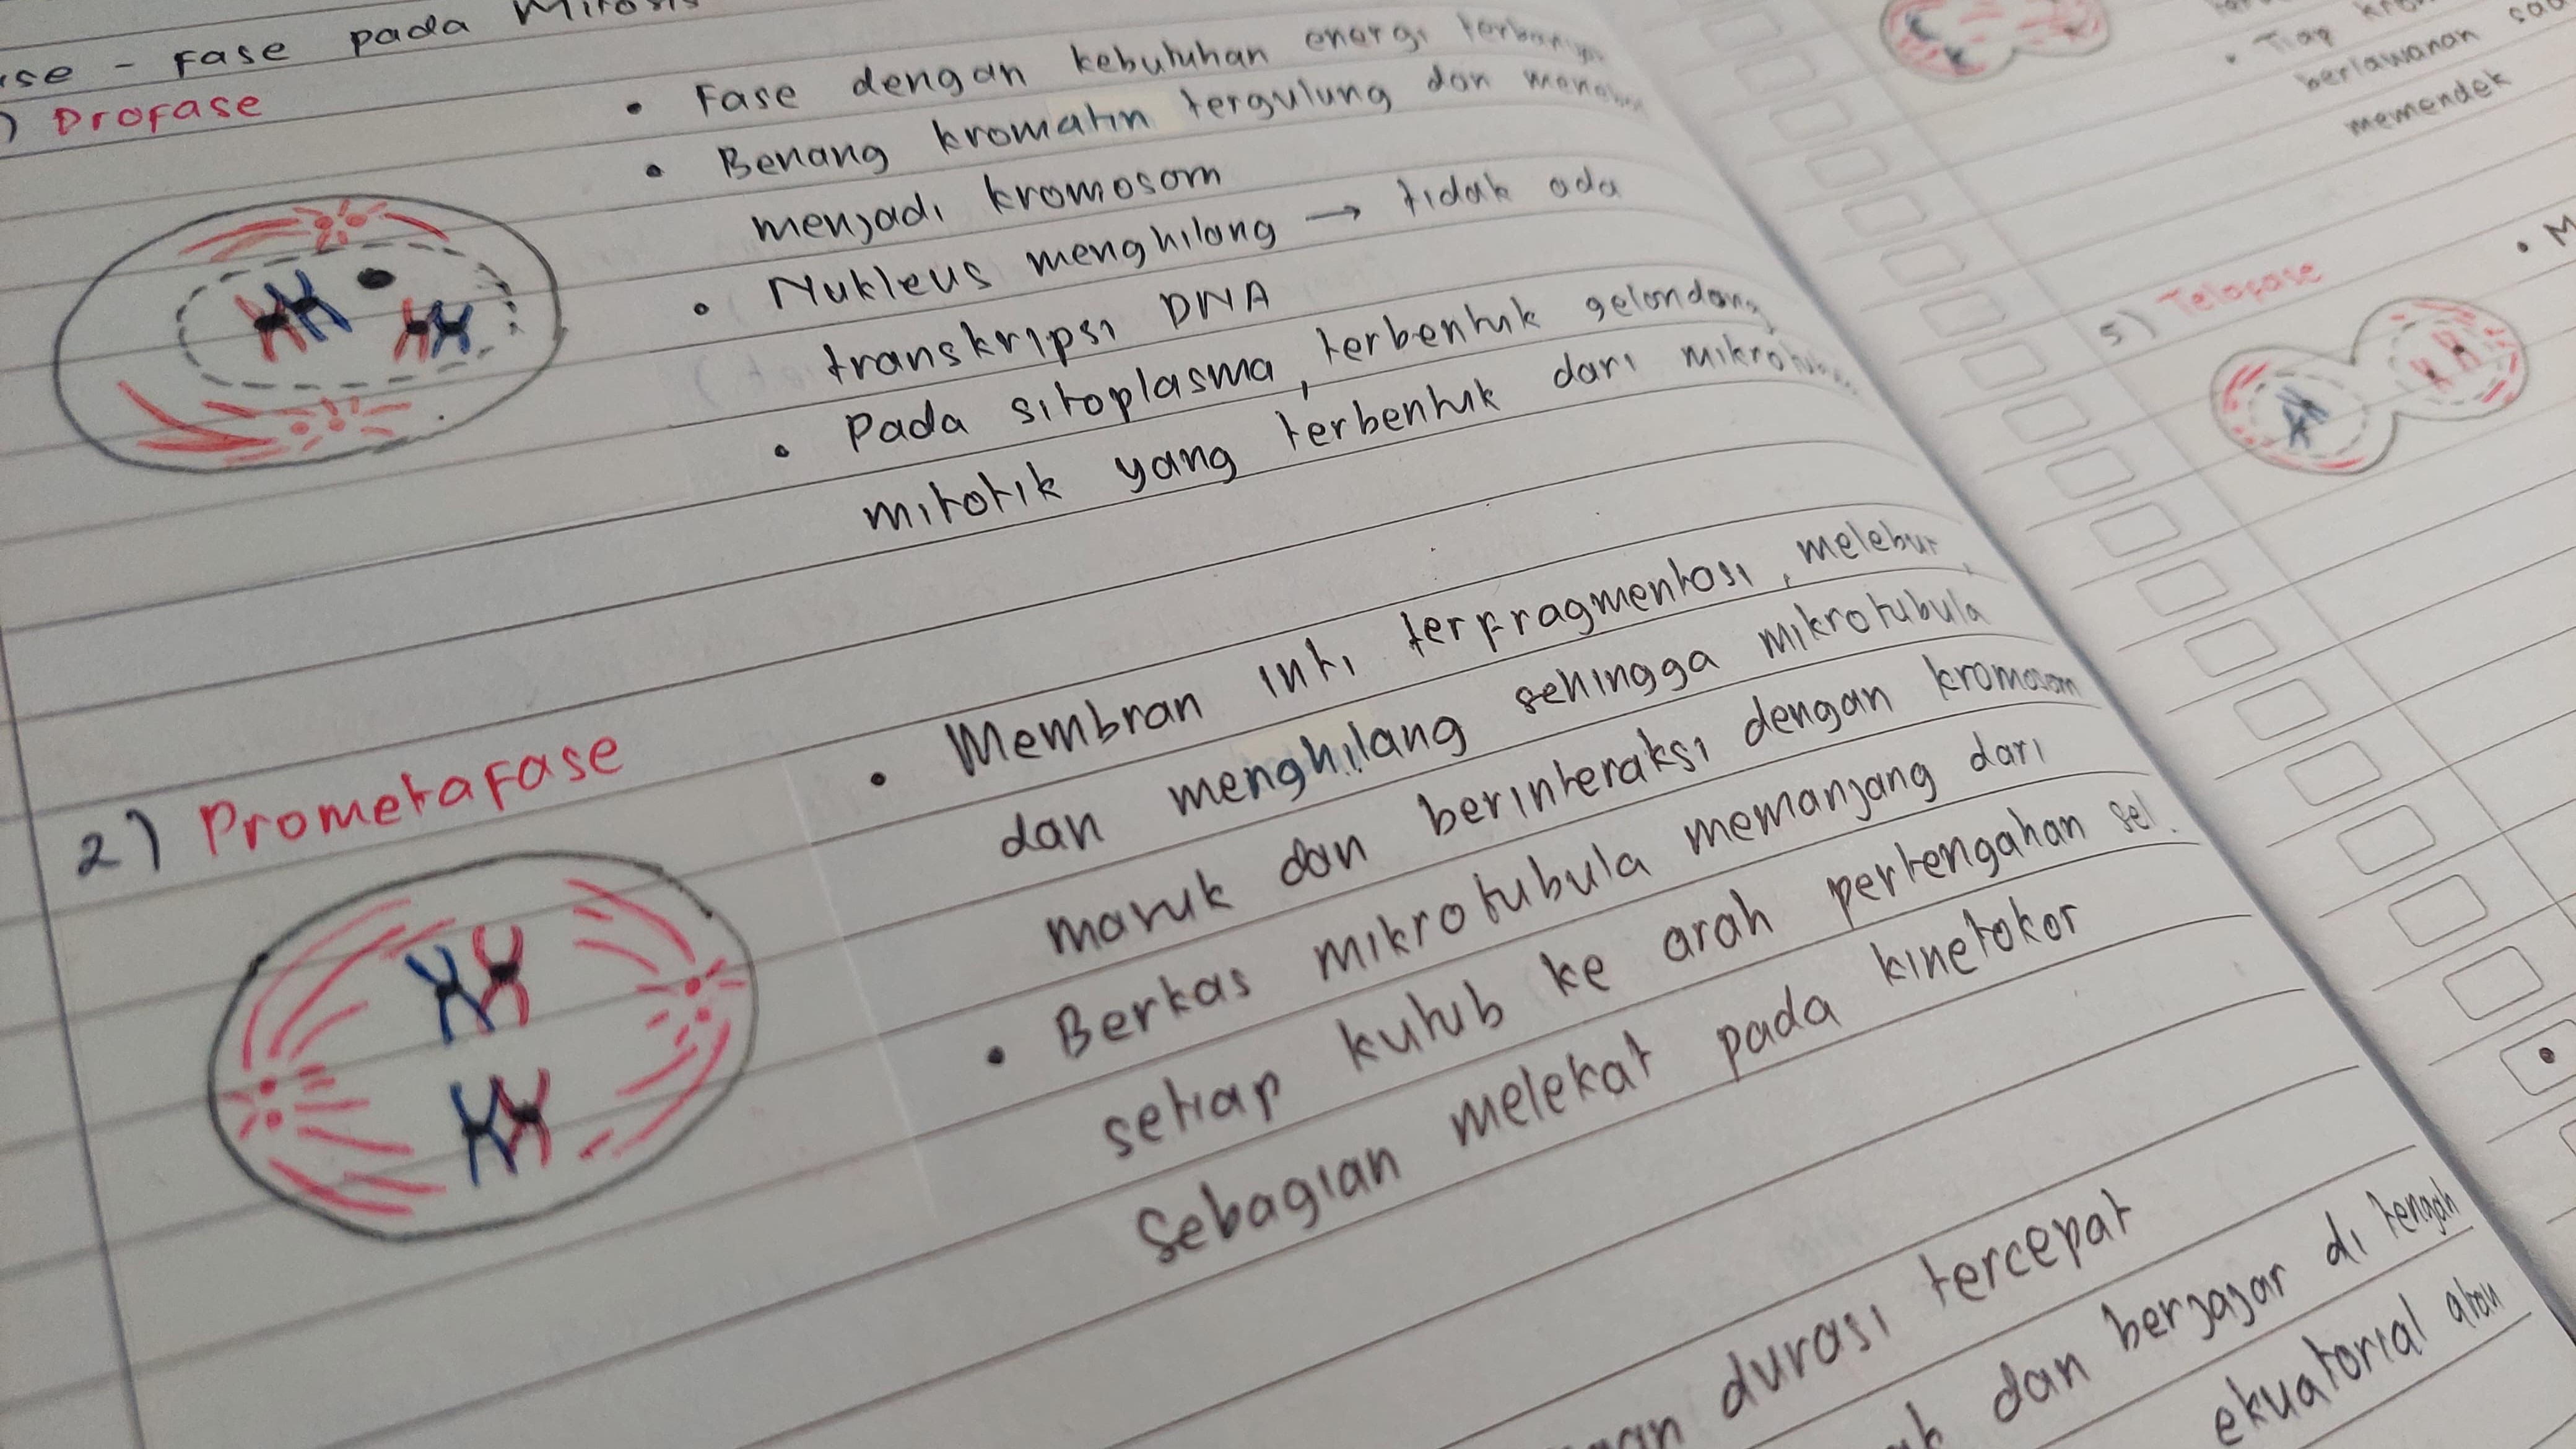 - Fase pada Mitosis
) Profase
• Fase dengan kebutuhan energi
• Benang kromatin tergulung dan
menjadi kromosom
• Nukleus menghilang → tidak ada
transkripsi DNA
• Pada sitoplasma, terbentuk gelondong
mitotik yang terbentuk dari
2) Prometafase
• Membran inti terfragmentasi, melebur,
dan menghilang sehingga mikrotubula
masuk dan berinteraksi dengan kromosom
• Berkas mikrotubula memanjang dari
setiap kutub ke arah pertengahan sel.
Sebagian melekat pada kinetokor
durasi tercepat
dan berjajar di tengah
ekuatorial atau
• Tiap
berlawanan
memendek
5) Telofase